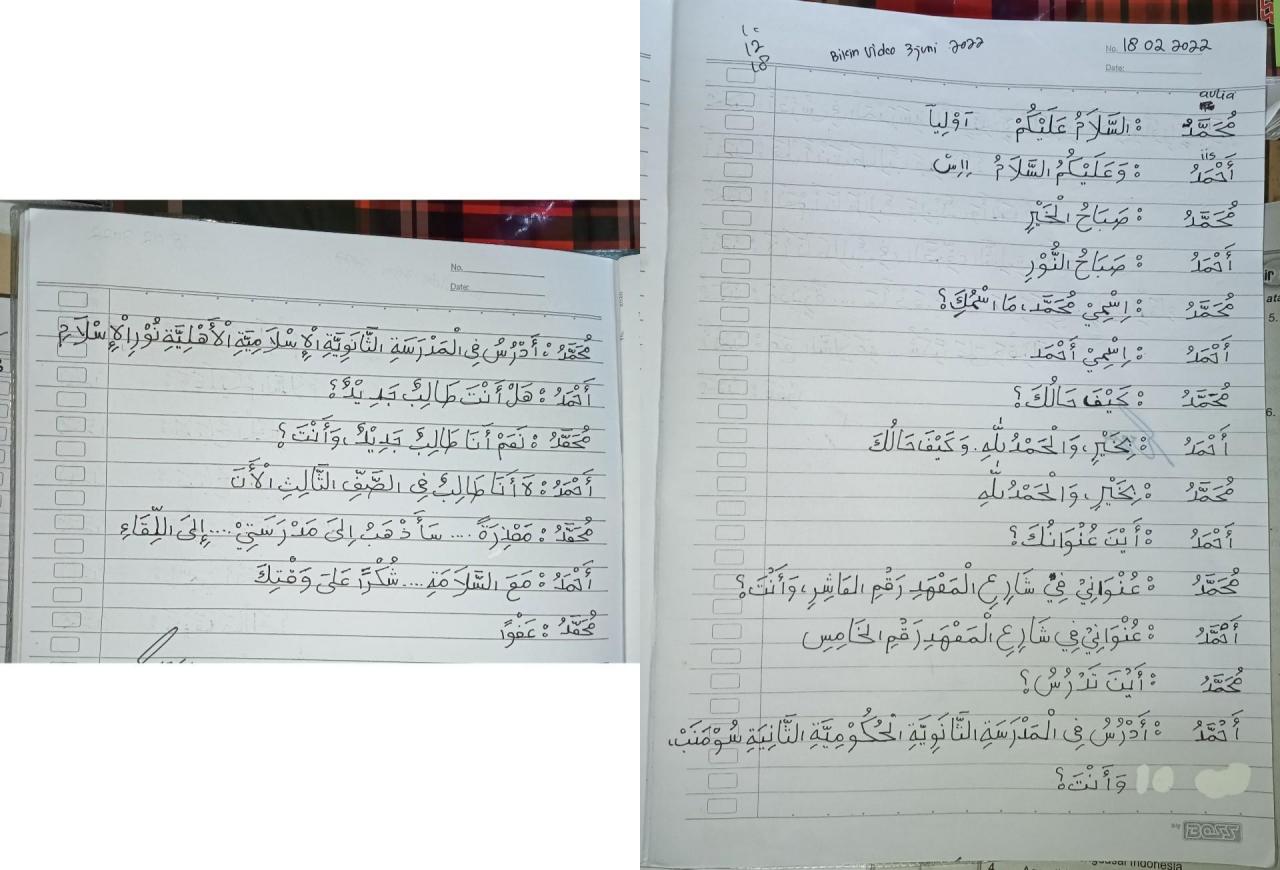 10
12
18
Bikin video 3 juni 2022
No. 18 02 2022
Date:
aulia
مُحَمَّدُ : السَّلَامُ عَلَيْكُمْ اَوْلِيَا
iis
أَحْمَدُ : وَعَلَيْكُمُ السَّلَامُ اِاِسْ
مُحَمَّدُ : صَبَاحُ الْخَيْرِ
أَحْمَدُ : صَبَاحُ النُّوْرِ
مُحَمَّدُ : اِسْمِيْ مُحَمَّد، مَا اسْمُكَ؟
أَحْمَدُ : اِسْمِيْ أَحْمَد
مُحَمَّدُ : كَيْفَ حَالُكَ؟
أَحْمَدُ : بِخَيْرٍ، وَالْحَمْدُ لِلّٰهِ. وَكَيْفَ حَالُكَ
مُحَمَّدُ : بِخَيْرٍ، وَالْحَمْدُ لِلّٰهِ
أَحْمَدُ : أَيْنَ عُنْوَانُكَ؟
مُحَمَّدُ : عُنْوَانِيْ فِيْ شَارِعِ الْمَعْهَدِ رَقْمِ العَاشِرِ، وَأَنْتَ؟
أَحْمَدُ : عُنْوَانِيْ فِي شَارِعِ الْمَعْهَدِ رَقْمِ الخَامِسِ
مُحَمَّدُ : أَيْنَ تَدْرُسُ؟
أَحْمَدُ : أَدْرُسُ فِى الْمَدْرَسَةِ الثَّانَوِيَّةِ الْحُكُوْمِيَّةِ الثَّانِيَةِ سُوْمَنَبْ،
وَأَنْتَ؟
BOSS
No.
Date:
مُحَمَّدُ : أَدْرُسُ فِى الْمَدْرَسَةِ الثَّانَوِيَّةِ الْإِسْلَامِيَّةِ الْأَهْلِيَّةِ نُوْرِ الْإِسْلَامِ
أَحْمَدُ : هَلْ أَنْتَ طَالِبٌ جَدِيْدٌ؟
مُحَمَّدُ : نَعَمْ أَنَا طَالِبٌ جَدِيْدٌ، وَأَنْتَ؟
أَحْمَدُ : لَا أَنَا طَالِبٌ فِى الصَّفِّ الثَّالِثِ الْأَنَ
مُحَمَّدُ : مَعْذِرَةً .... سَأَذْهَبُ اِلىَ مَدْرَسَتِيْ .... إِلىَ اللِّقَاءِ
أَحْمَدُ : مَعَ السَّلَامَةِ .... شُكْرًا عَلىَ وَقْتِكَ
مُحَمَّدُ : عَفْوًا